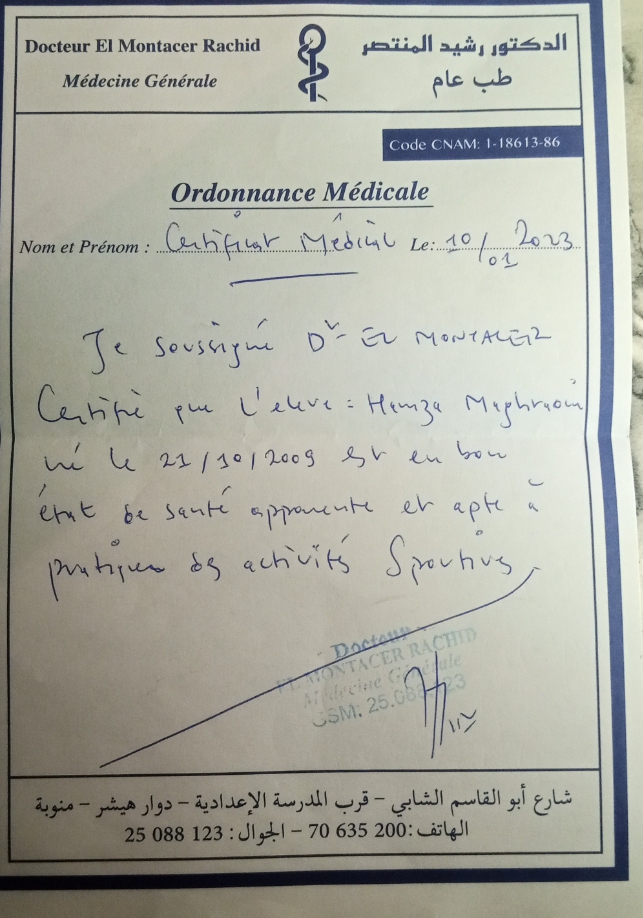 Docteur El Montacer Rachid
Médecine Générale
الدكتور رشيد المنتصر
طب عام
Code CNAM: 1-18613-86
Ordonnance Médicale
Nom et Prénom : Certificat Médical Le: 10/01 2023
Je soussigné Dr EL MONTACER
Certifie que l'eleve : Hamza Maghraoui
né le 21/10/2009 est en bon
état de santé apparente et apte à
pratiquer des activités Sportives
Docteur
EL MONTACER RACHID
Médecine Générale
GSM: 25.088.123
شارع أبو القاسم الشابي – قرب المدرسة الإعدادية – دوار هيشر – منوبة
الهاتف: 70 635 200 – الجوال: 25 088 123